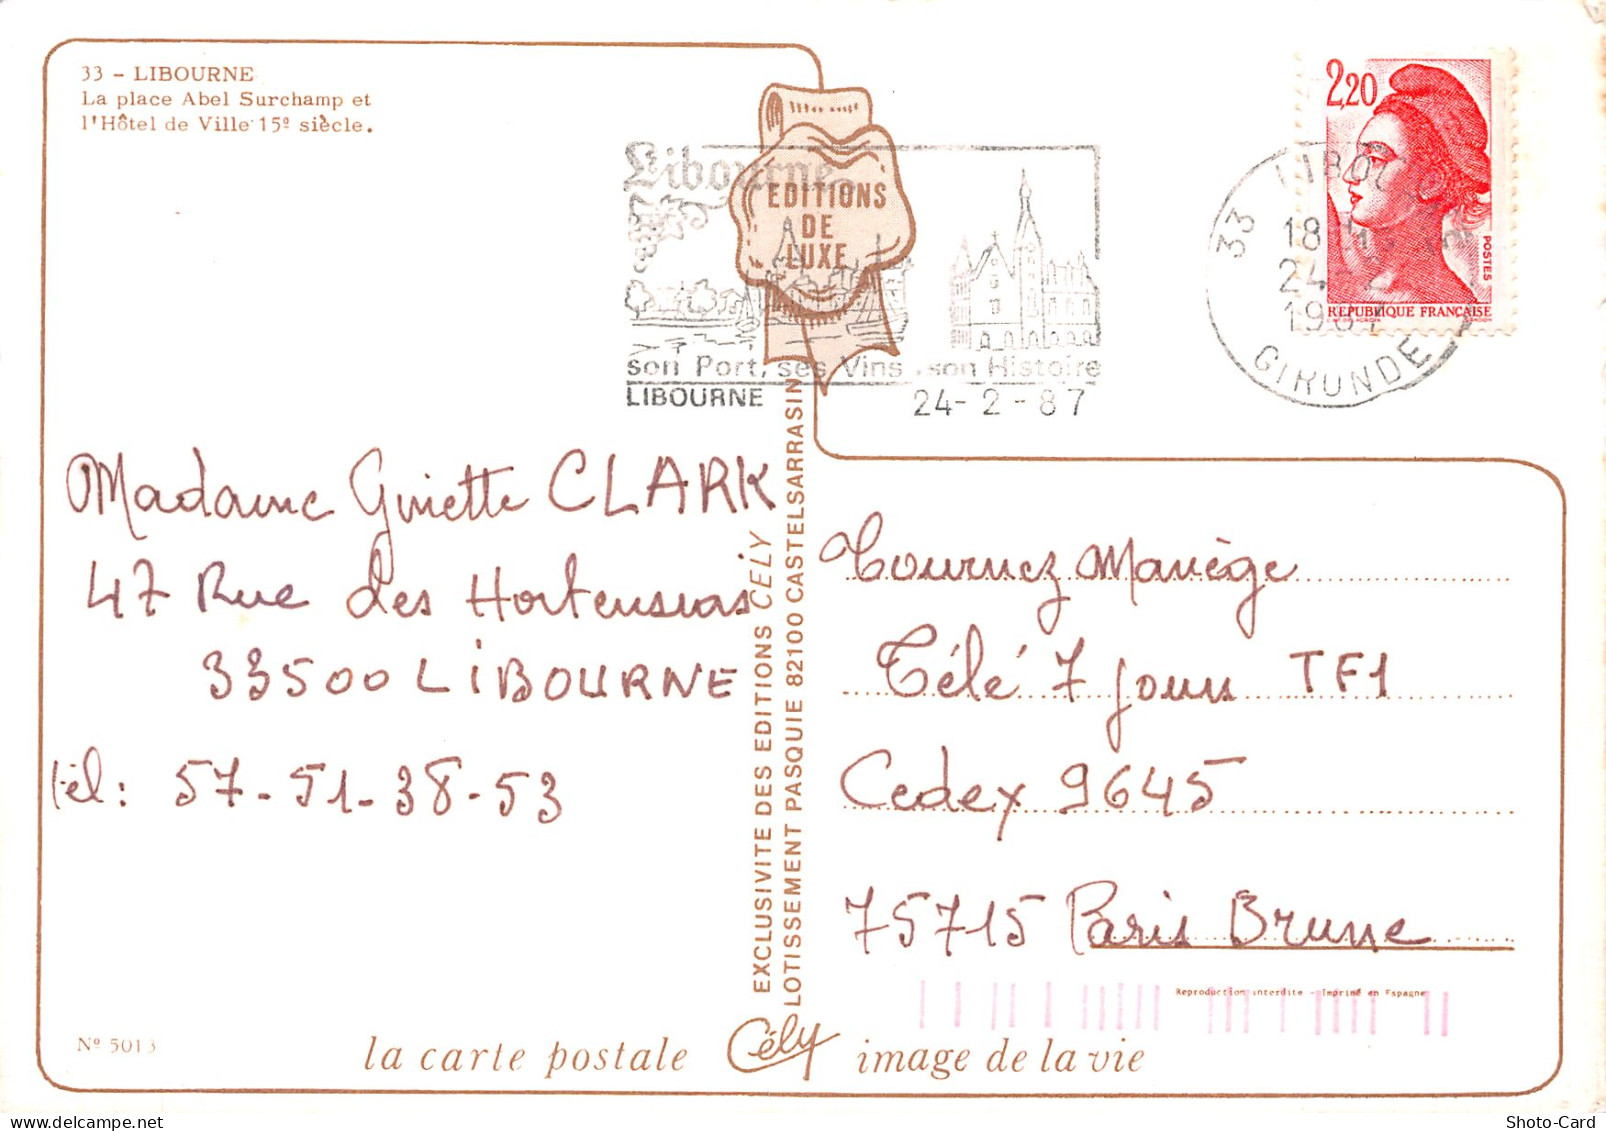 33 - LIBOURNE
La place Abel Surchamp et
l'Hôtel de Ville 15e siècle.
Libourne
son Port, ses Vins, son Histoire
LIBOURNE
24-2-87
EDITIONS
DE
LUXE
2,20
POSTES
REPUBLIQUE FRANÇAISE
33 LIBOURNE
18H
24-2
1987
GIRONDE
Madame Ginette CLARK
47 Rue des Hortensias
33500 LIBOURNE
tél: 57-51-38-53
EXCLUSIVITE DES EDITIONS CÉLY
LOTISSEMENT PASQUIE 82100 CASTELSARRASIN
Tournez Manège
Télé 7 jours TF1
Cedex 9645
75715 Paris Brune
Reproduction interdite - Imprimé en Espagne
Nº 5013
la carte postale Cély image de la vie
Shoto-Card